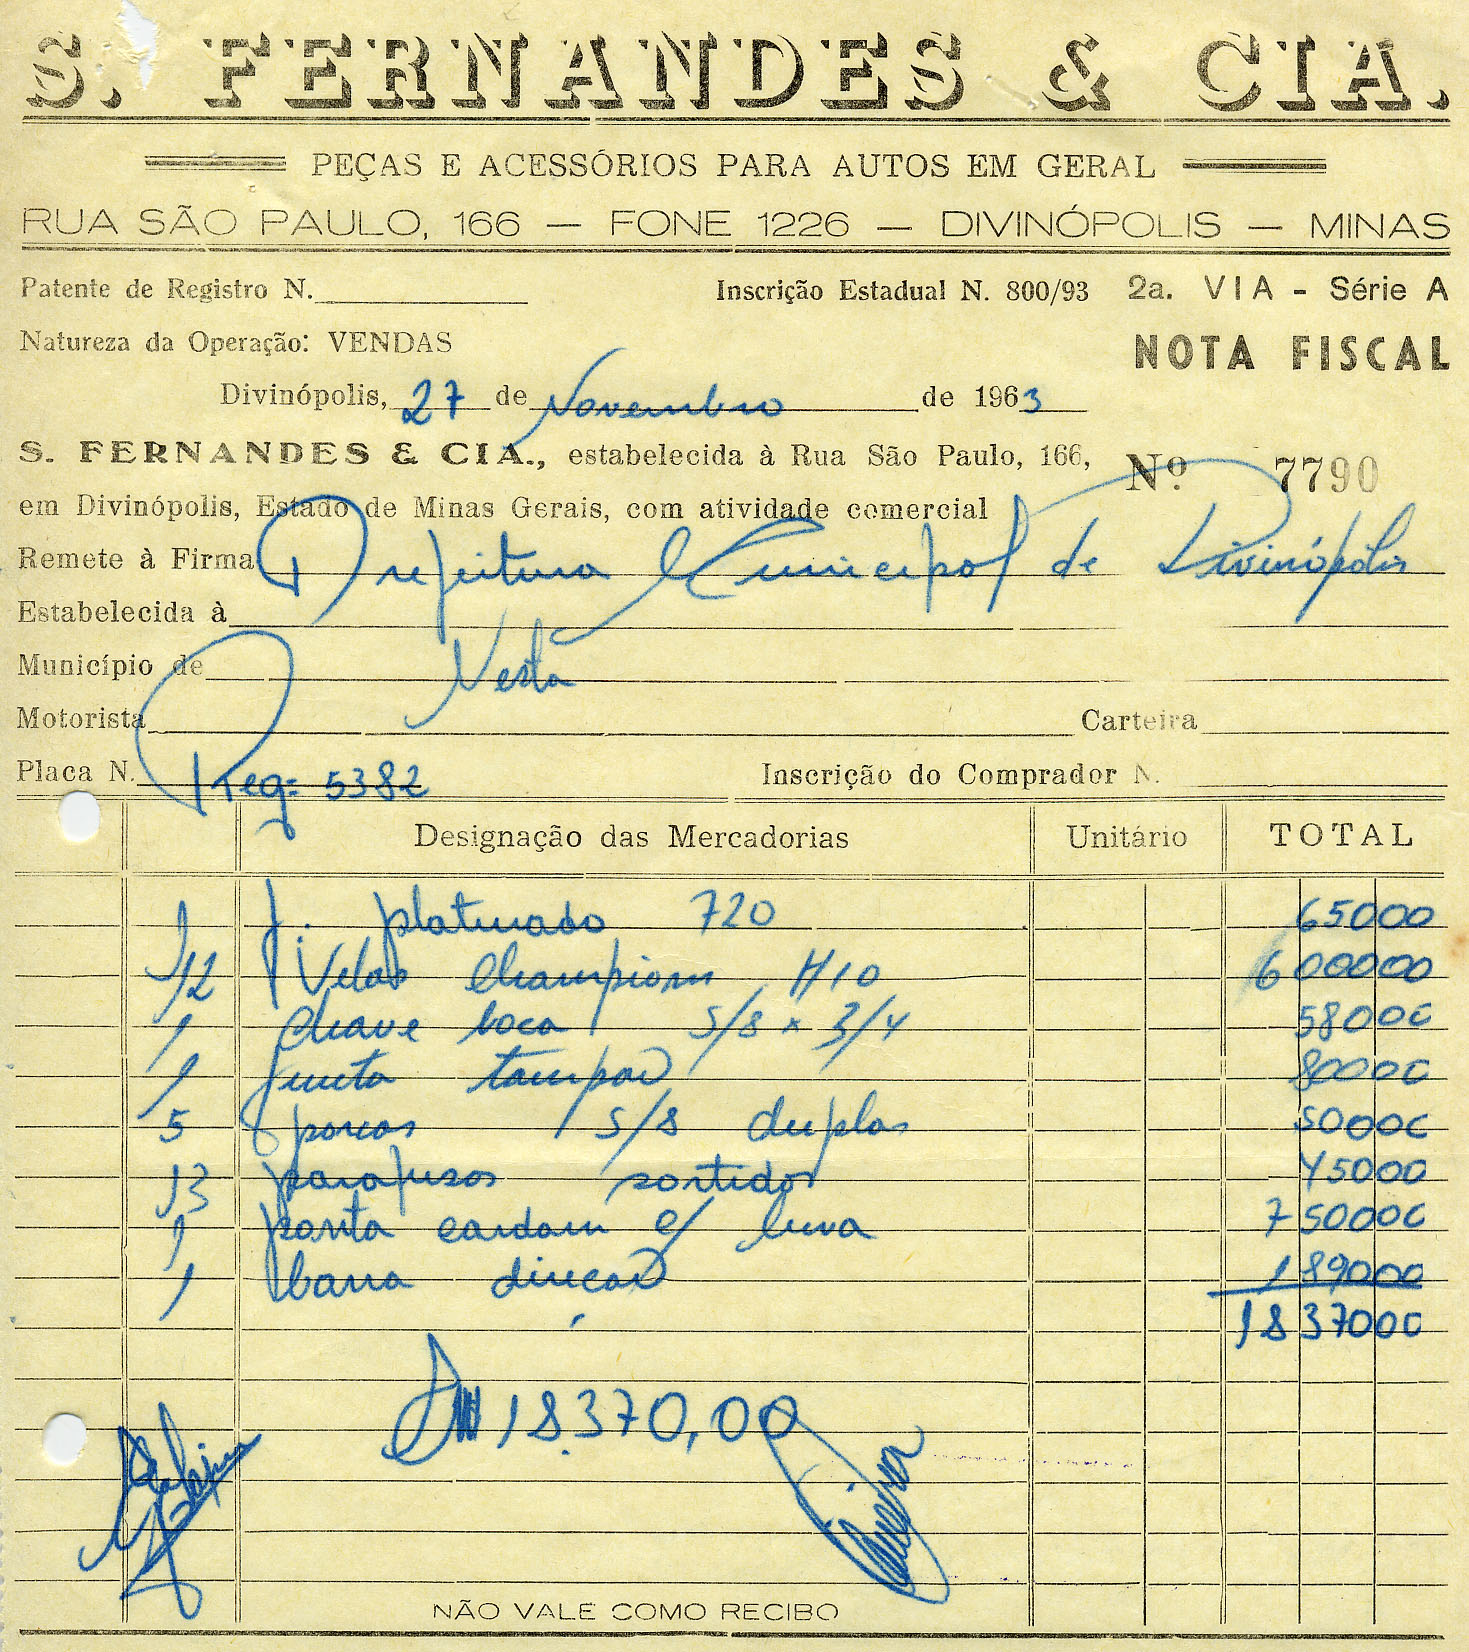 S. FERNANDES & CIA.
PEÇAS E ACESSÓRIOS PARA AUTOS EM GERAL
RUA SÃO PAULO, 166 — FONE 1226 — DIVINÓPOLIS — MINAS
Patente de Registro N. Inscrição Estadual N. 800/93 2a. VIA - Série A
Natureza da Operação: VENDAS NOTA FISCAL
Divinópolis, 27 de Novembro de 1963
S. FERNANDES & CIA., estabelecida à Rua São Paulo, 166,
Nº 7790
em Divinópolis, Estado de Minas Gerais, com atividade comercial
Remete à Firma Prefeitura Municipal de Divinópolis
Estabelecida à
Município de Nesta
Motorista Carteira
Placa N. Reg= 5382 Inscrição do Comprador N.
Designação das Mercadorias Unitário TOTAL
1 J. platinado 720 65000
12 Velas Champion H10 600000
1 chave boca 5/8 x 3/4 58000
1 junta tampão 80000
5 porcas 5/8 duplas 50000
13 parafusos sortidos 45000
1 ponta cardam c/ luva 750000
1 barra direção 189000
1837000
18.370,00
NÃO VALE COMO RECIBO